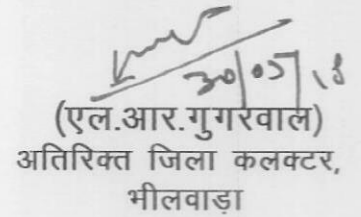 30/05/18
(एल.आर.गुगरवाल)
अतिरिक्त जिला कलक्टर,
भीलवाड़ा